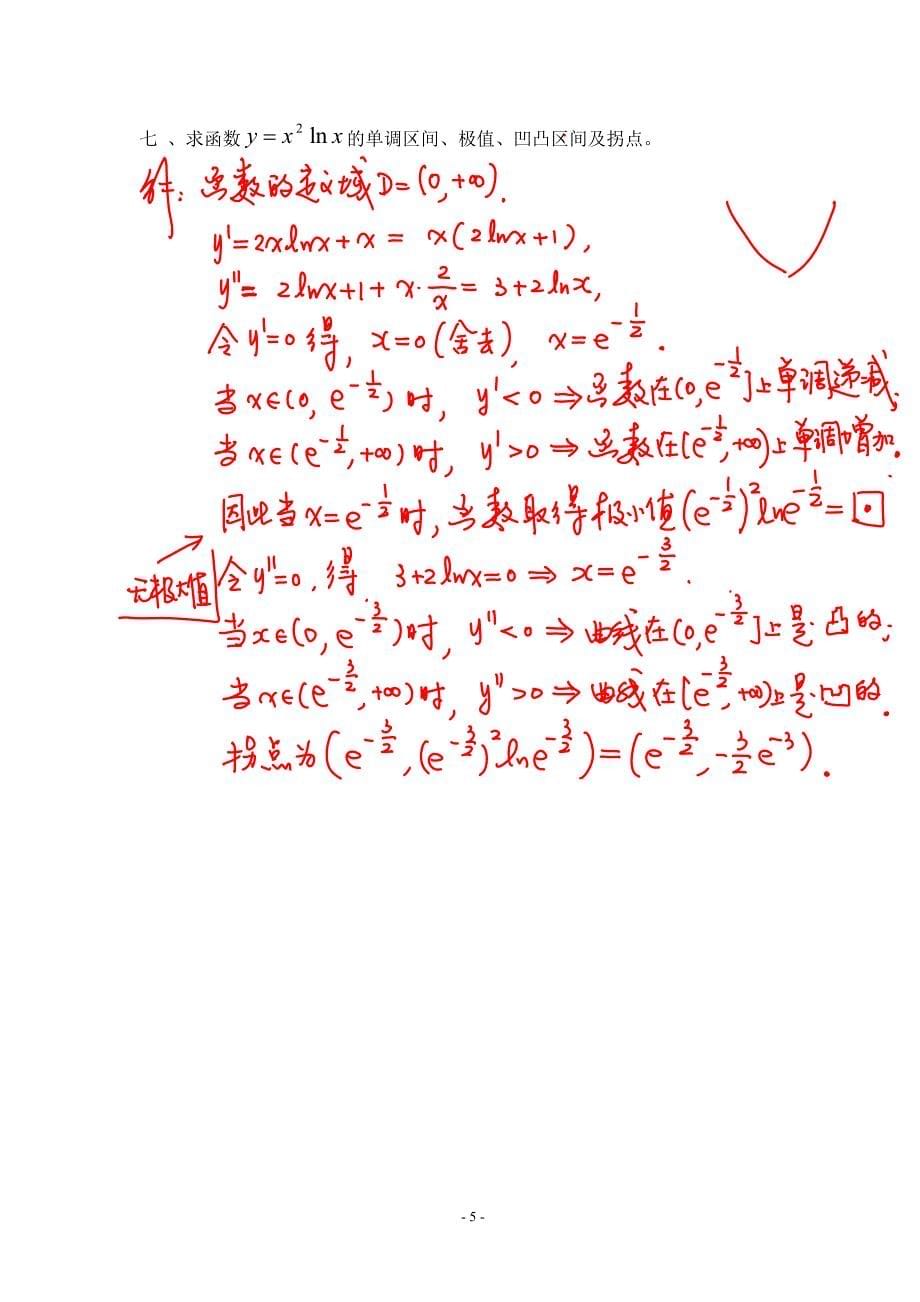 七 、求函数 y = x² ln x 的单调区间、极值、凹凸区间及拐点。
解：函数的定义域D=(0,+∞).
y'=2xlnx+x = x(2lnx+1),
y''= 2lnx+1+x·2/x = 3+2lnx,
令y'=0得, x=0(舍去), x=e^{-1/2}.
当x∈(0, e^{-1/2})时, y'<0⇒函数在(0,e^{-1/2}]上单调递减;
当x∈(e^{-1/2},+∞)时, y'>0⇒函数在[e^{-1/2},+∞)上单调增加.
因此当x=e^{-1/2}时,函数取得极小值(e^{-1/2})²lne^{-1/2}=⊡
无极大值
令y''=0,得 3+2lnx=0⇒x=e^{-3/2}.
当x∈(0,e^{-3/2})时, y''<0⇒曲线在(0,e^{-3/2}]上是凸的;
当x∈(e^{-3/2},+∞)时, y''>0⇒曲线在[e^{-3/2},+∞)上是凹的.
拐点为(e^{-3/2},(e^{-3/2})²lne^{-3/2})=(e^{-3/2},-3/2e^{-3}).
- 5 -